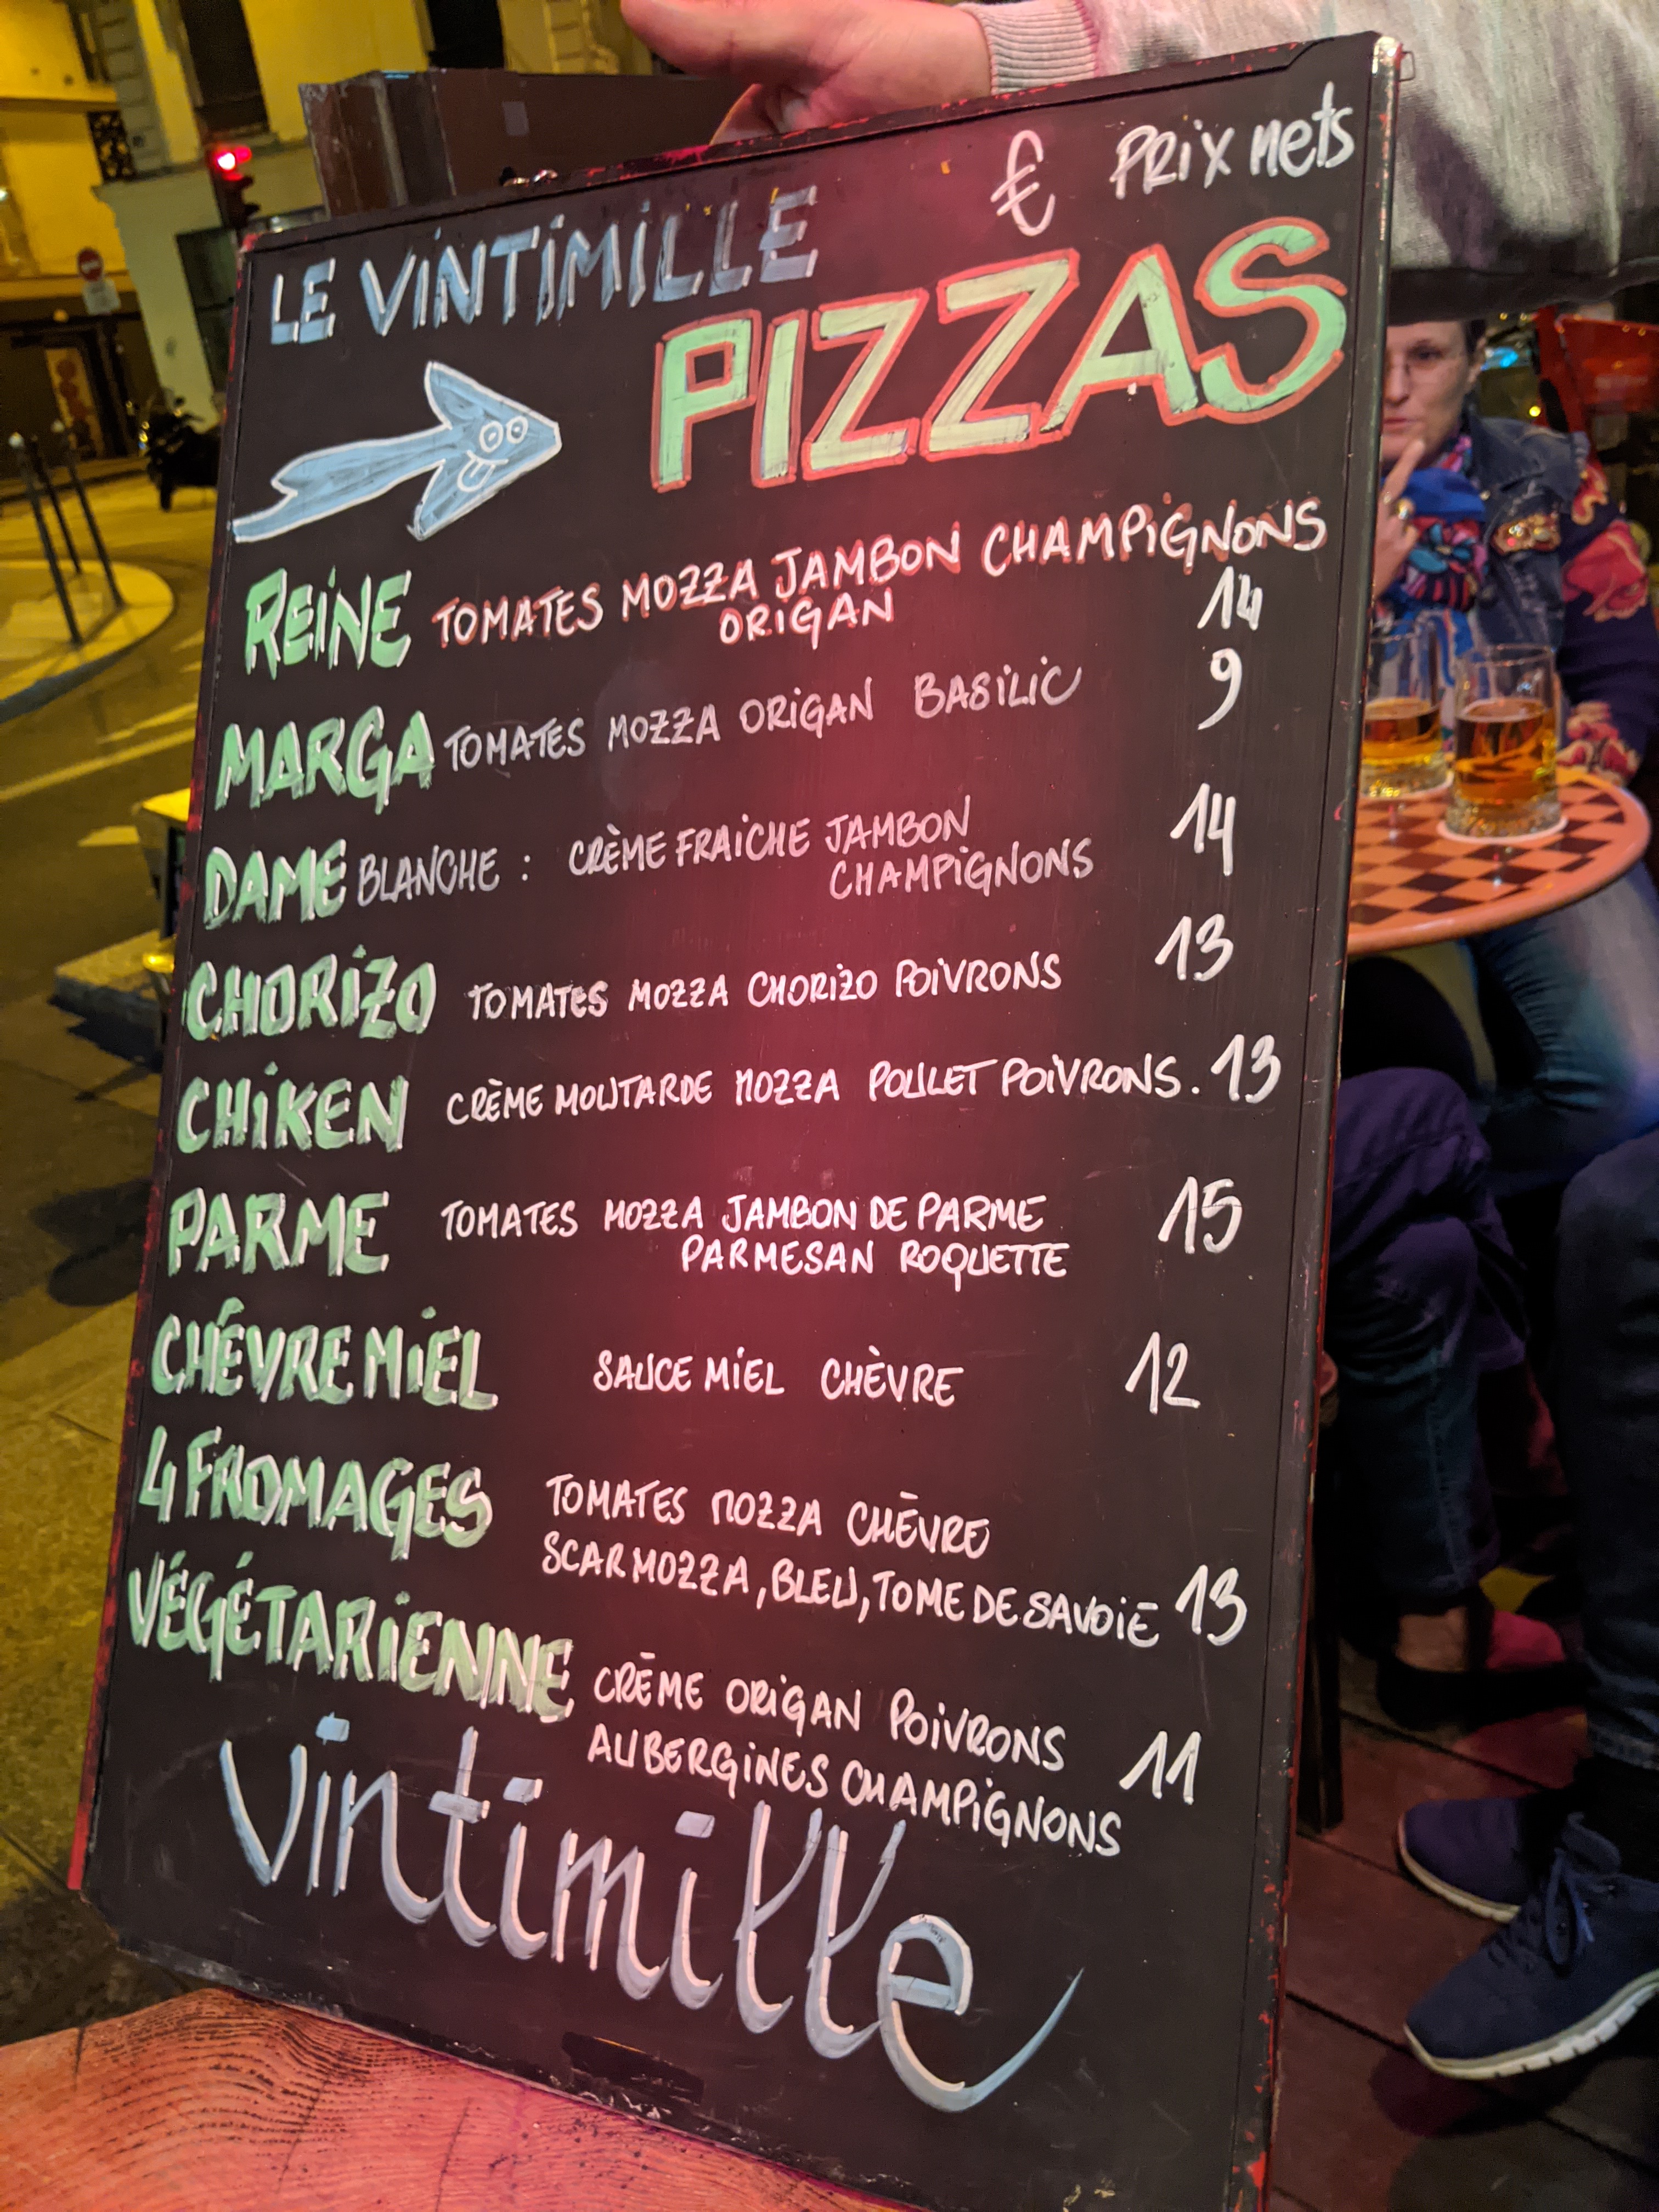 € PRiX nets
LE ViNTiMiLLE
PIZZAS
REiNE TOMATES MOZZA JAMBON CHAMPiGNONS
ORiGAN 14
MARGA TOMATES MOZZA ORiGAN BASiLiC 9
DAME BLANCHE : CRÈME FRAiCHE JAMBON 14
CHAMPiGNONS
CHORiZO TOMATES MOZZA CHORiZO POiVRONS 13
CHiKEN CRÈME MOUTARDE MOZZA POULET POiVRONS. 13
PARME TOMATES MOZZA JAMBON DE PARME 15
PARMESAN ROQUETTE
CHÉVRE MiEL SAUCE MiEL CHÈVRE 12
4 FROMAGES TOMATES MOZZA CHĒVRE
SCARMOZZA, BLEU, TOME DE SAVOiE 13
VÉGÉTARiENNE CRĒME ORiGAN POiVRONS 11
AUBERGiNES CHAMPiGNONS
Vintimille